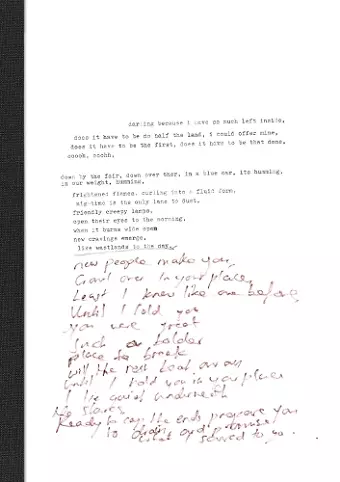 darling because i have so much left inside,
does it have to be do half the land, i could offer mine,
does it have to be the first, does it have to be that dens,
ooooh, ooohh,
down by the fair, down over there, in a blue car, its humming,
in our weight, humming,
frightened fiance, curling into a fluid form,
time is the only lane to dust,
friendly creepy lamps,
open their eyes to the morning,
when it burns wide open
new cravings emerge,
like wastlands to the
new people make you
over in your place,
Least I knew like one before,
Until I told you
you were great
Such a bolder
place to break
will the rest
Until I told you in your place
I lie quiet underneath
No
Ready to the ends prepare you
to and promise
what I to you.